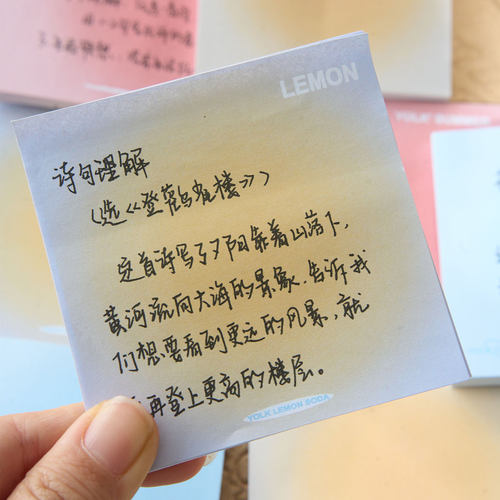 LEMON
诗句理解
(选《登鹳雀楼》)
这首诗写了夕阳靠着山落下,
黄河流向大海的景象,告诉我
们想要看到更远的风景,就
再登上更高的楼层。
YOLK LEMON SODA
YOLK SUMMER